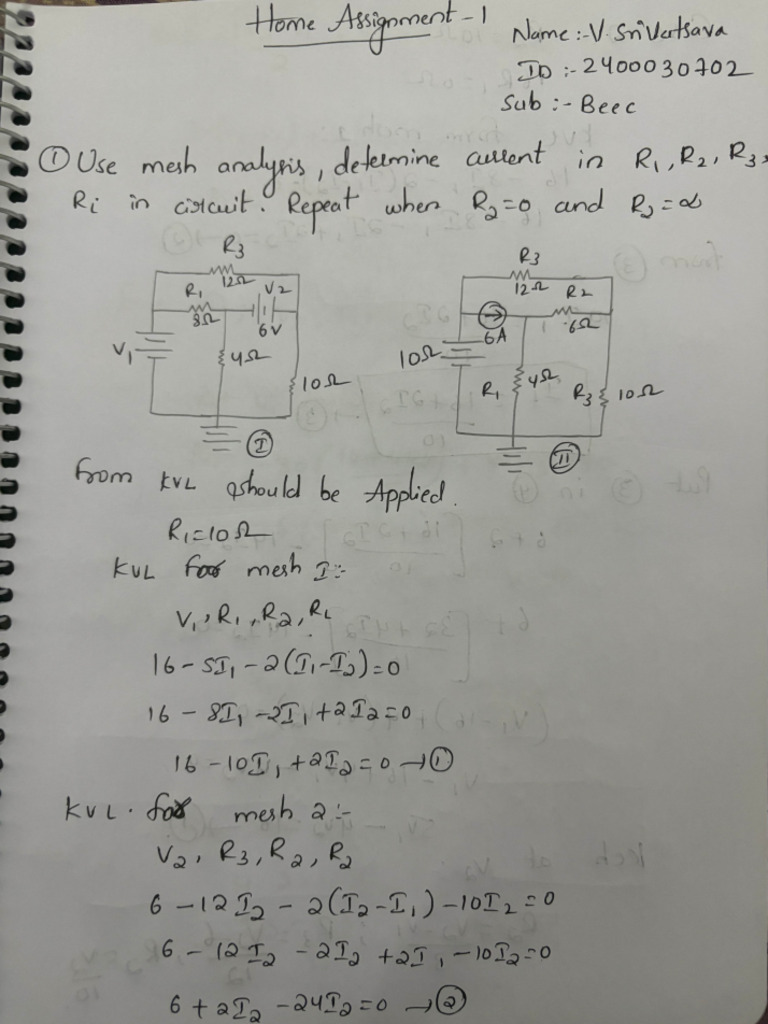 Home Assignment - 1
Name :- V. Sri Vertsava
ID :- 2400030702
Sub :- Beec
① Use mesh analysis, determine current in R₁, R₂, R₃,
Ri in circuit. Repeat when R₂=0 and R₂=∞
R₃
12Ω
R₁
8Ω
V₂
6V
V₁
4Ω
10Ω
Ⅰ
R₃
12Ω
R₂
6Ω
6A
10Ω
R₁
4Ω
R₃
10Ω
Ⅱ
from KVL should be Applied.
R₁=10Ω
KVL for mesh I:-
V₁, R₁, R₂, RL
16 - 5I₁ - 2(I₁-I₂)=0
16 - 8I₁ - 2I₁ + 2I₂=0
16 - 10I₁ + 2I₂ = 0 → ①
KVL. for mesh 2:-
V₂, R₃, R₂, R₂
6 - 12I₂ - 2(I₂-I₁) - 10I₂ = 0
6 - 12I₂ - 2I₂ + 2I₁ - 10I₂=0
6 + 2I₂ - 24I₂ = 0 → ②